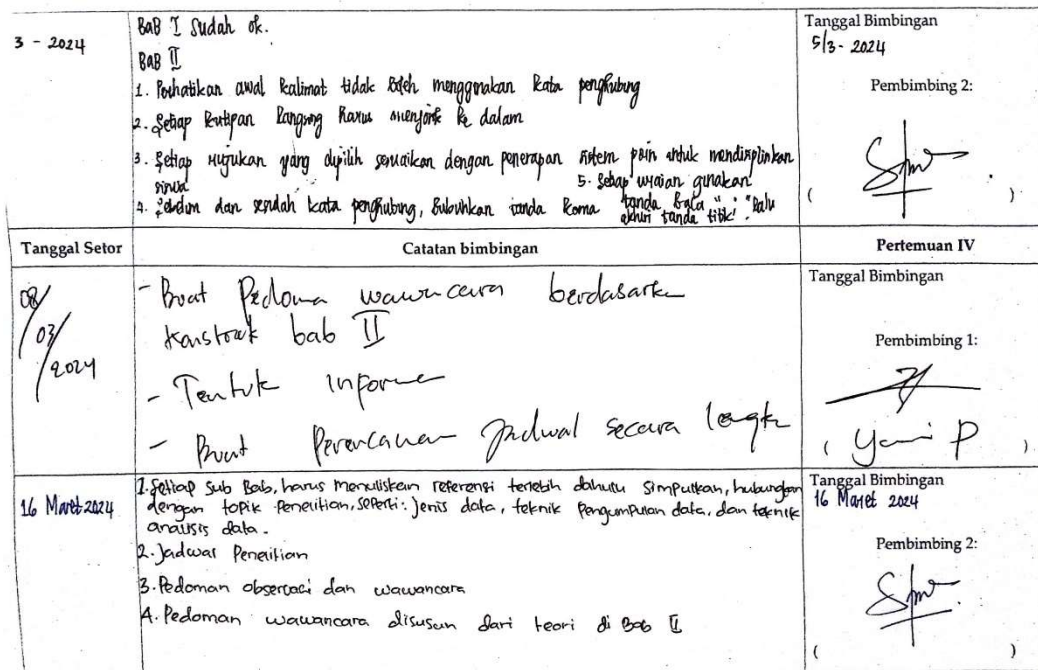 3 - 2024
BaB I Sudah ok.
BAB II
1. Perhatikan awal kalimat tidak boleh menggunakan kata penghubung
2. Setiap kutipan langsung harus menjorok ke dalam
3. Setiap rujukan yang dipilih sesuaikan dengan penerapan sistem poin untuk mendisplinkan
siswa
5. Setiap uraian gunakan
4. Sebelum dan sesudah kata penghubung, bubuhkan tanda koma
akhiri tanda titik
Tanggal Bimbingan
5/3 - 2024
Pembimbing 2:
( )
Tanggal Setor
Catatan bimbingan
Pertemuan IV
08/03/2024
- Buat Pedoma wawancara berdasarka
Konstrok bab II
- Tentuk informa
- Buat Perencanaan Jadwal secara
Tanggal Bimbingan
Pembimbing 1:
( Yani P )
16 Maret 2024
1. Setiap Sub Bab, harus menuliskan referensi terlebih dahulu simpulkan, hubungkan
dengan topik Penelitian, seperti: jenis data, teknik Pengumpulan data, dan teknik
analisis data.
2. Jadwal Penelitian
3. Pedoman observasi dan wawancara
4. Pedoman wawancara disusun dari teori di Bab II
Tanggal Bimbingan
16 Maret 2024
Pembimbing 2:
( )